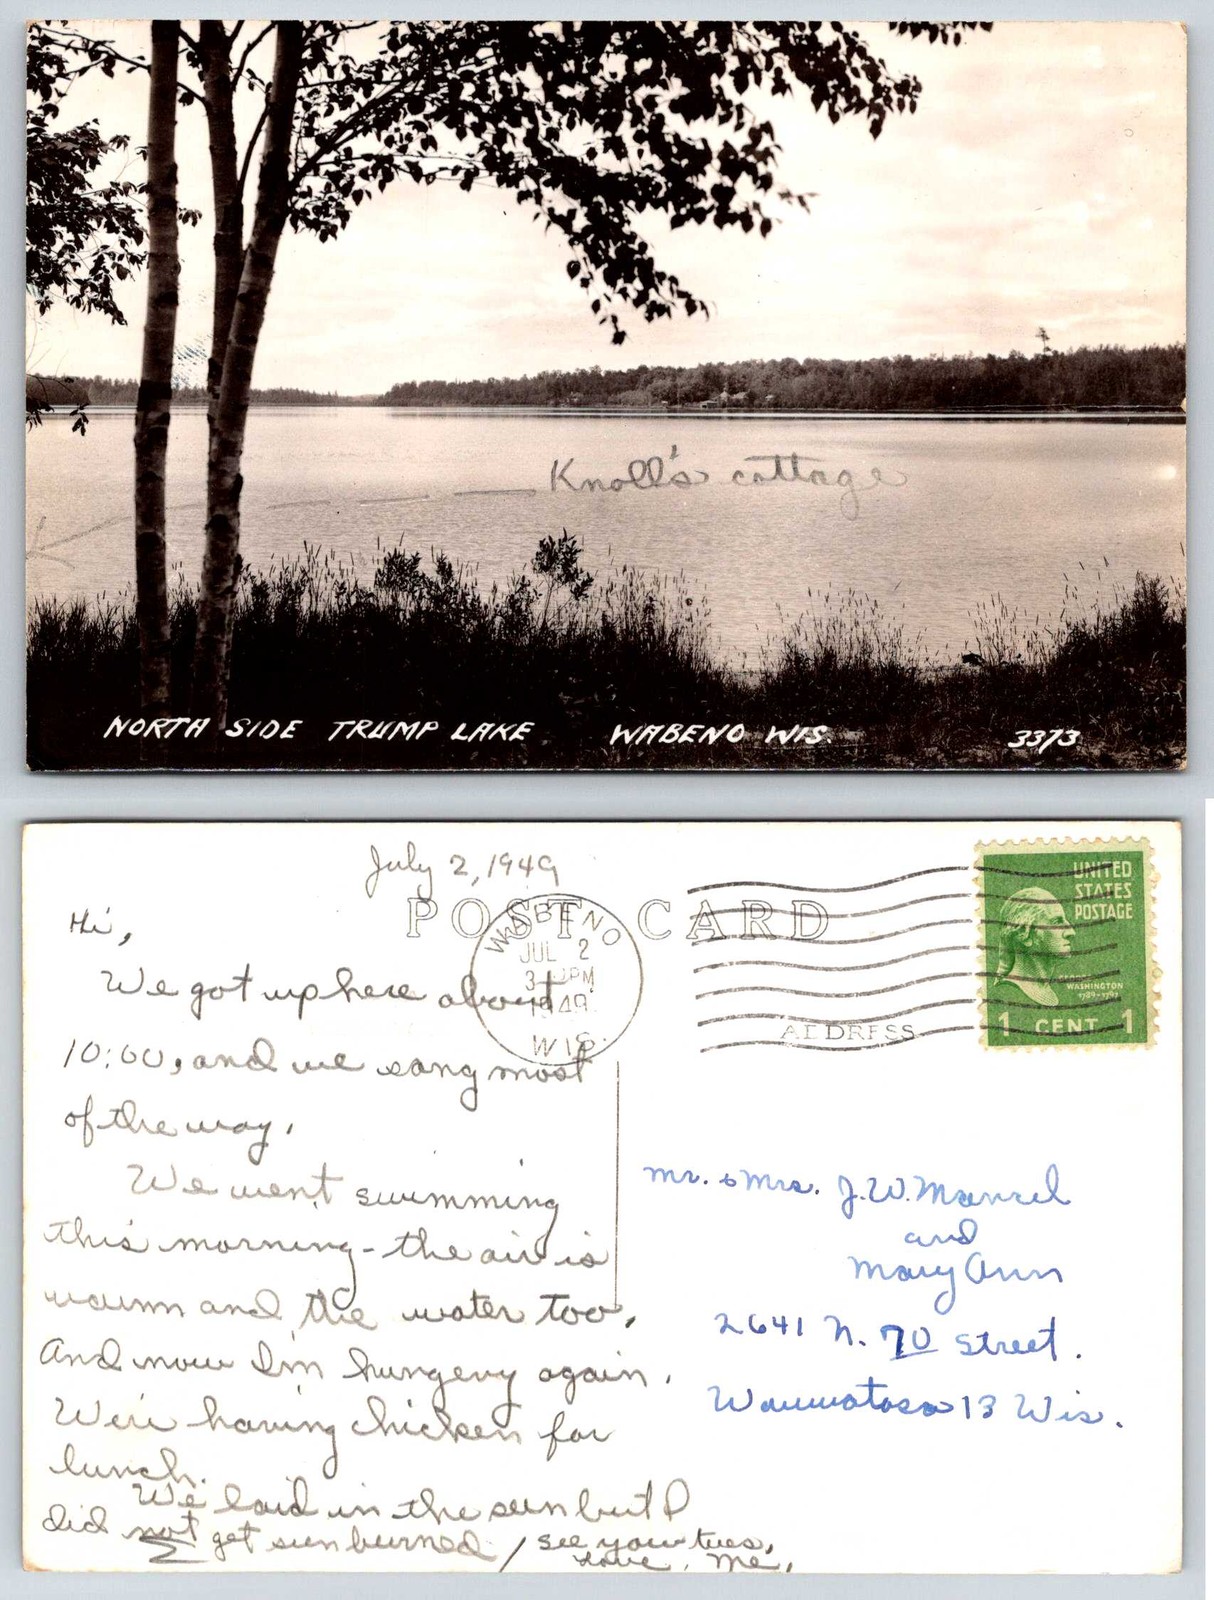 Knoll's cottage
NORTH SIDE TRUMP LAKE WABENO WIS. 3373
July 2, 1949
POST CARD
WABENO
JUL 2
3 PM
1949
WIS.
UNITED
STATES
POSTAGE
GEORGE
WASHINGTON
1789-1797
1 CENT 1
ADDRESS
Hi,
We got up here about
10:00, and we sang most
of the way.
We went swimming
this morning - the air is
warm and the water too.
And now I'm hungery again.
We're having chicken for
lunch.
We laid in the sun but I
did not get sunburned / see you tues.
Love, Me.
Mr. & Mrs. J.W. Mansel
and
Mary Ann
2641 N. 70 Street.
Wauwatosa 13 Wis.